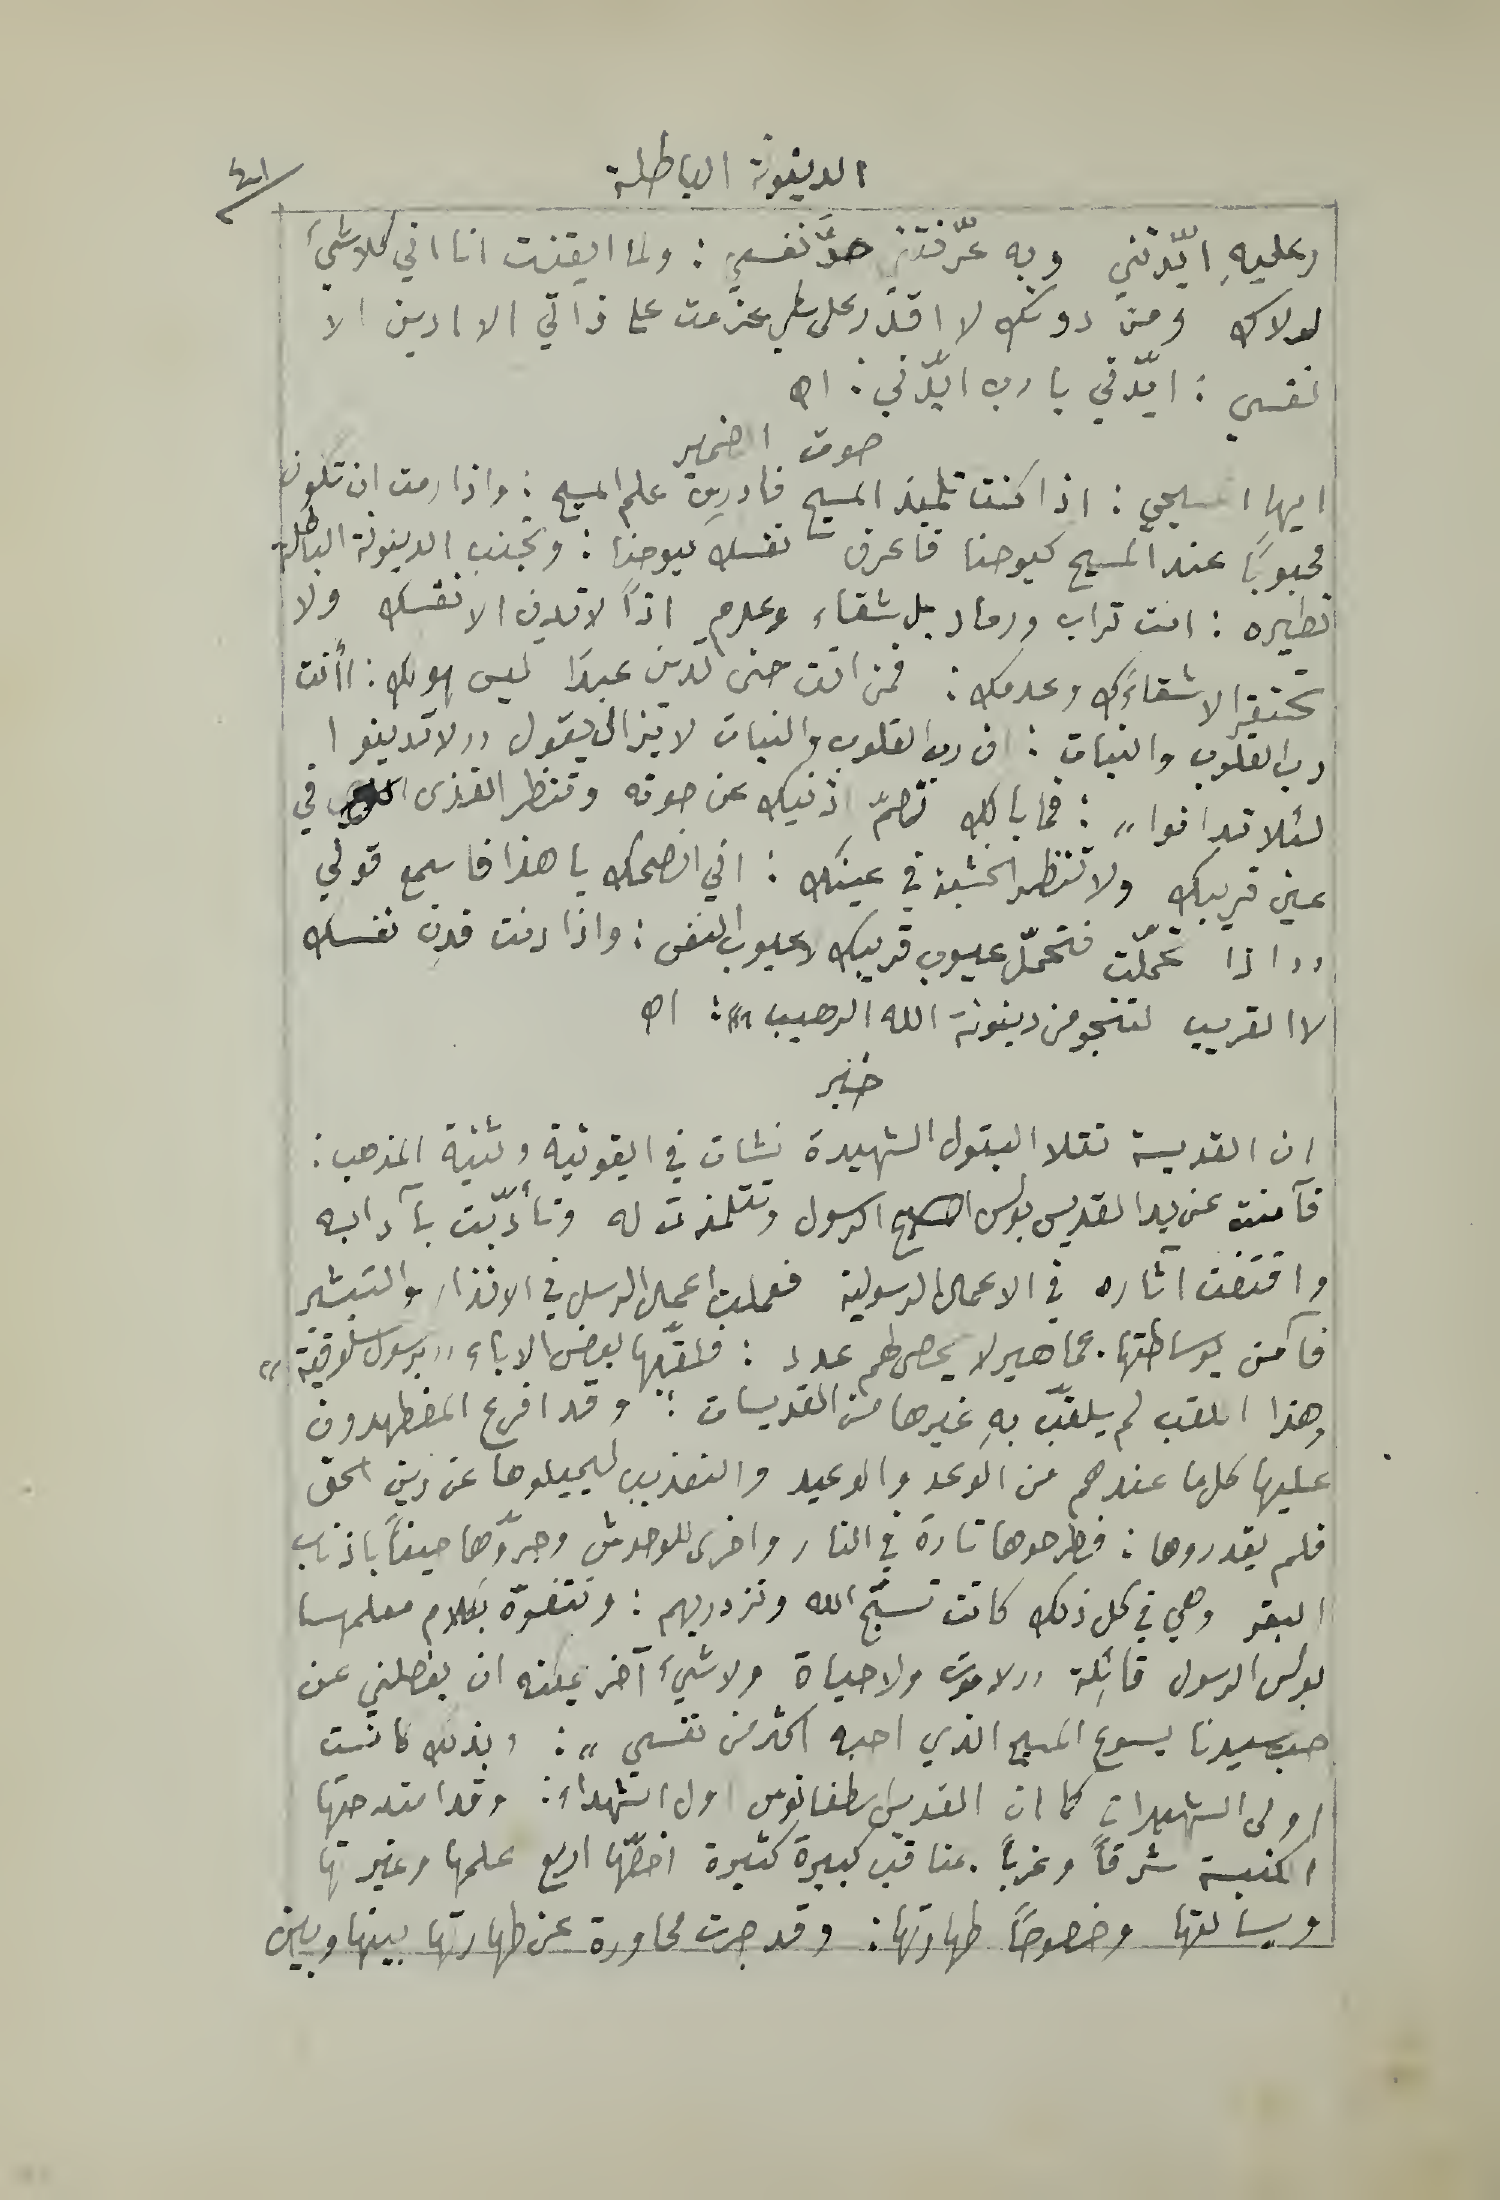 الدينونة الباطلة
وعليهِ ايّدتني وبه عرّفتني حدَّ نفسي : ولما ايقنت انا اني كلا شيءٌ
لولاك ومن دونك لا اقدر على شي عزمت على ذاتي الا ادين الا
نفسي : ايّدني يا رب ايّدني : اه
صوت الضمير
ايها المسيحي : اذا كنت تلميذ المسيح فادرس علم المسيح : واذا رمت ان تكون
محبوباً عند المسيح كيوحنا فاعرف نفسك كيوحنا : وتجنب الدينونة الباطلة
نظيره : انت تراب ورماد بل شقاء وعدم اذاً لا تدين الا نفسك ولا
تحتقر الا شقاءك وعدمك : فمن انت حتى تدين عبداً ليس هو لك : أأنت
رب القلوب والنيات : ان رب القلوب والنيات لا يزال يقول ,, لا تدينوا
لئلا تدانوا ,, : فما بالك تصمّ اذنيك عن صوته وتنظر القذى في
عين قريبك ولا تنظر الخشبة في عينك : اني انصحك يا هذا فاسمع قولي
,, اذا تحمّلت فتحمّل عيوب قريبك لا عيوب النفس : واذا دنت فدِن نفسك
لا القريب لتنجو من دينونة الله الرهيب ,, : اه
خبر
ان القديسة تقلا البتول الشهيدة نشات في ايقونية وثنية المذهب :
فآمنت عن يد القديس بولس الرسول وتتلمذت له وتأدّبت بآدابه
واقتفت آثاره في الاعمال الرسولية فعملت اعمال الرسل في الانذار والتبشير
فآمن بوساطتها جماهير لا يحصى لهم عدد : فلقّبها بعض الاباء ,, برسول سلوقية ,,
وهذا اللقب لم يلقّب بهِ غيرها من القديسات : وقد افرغ المضطهدون
عليها كل ما عندهم من الوعد والوعيد والتعذيب ليميلوها عن دين الحق
فلم يقدروها : فطرحوها تارة في النار واخرى للوحوش وجرّوها حيناً باذناب
البقر وهي في كل ذلك كانت تسبّح الله وتزدريهم : وتتفوّه بكلام معلمها
بولس الرسول قائلة ,, لا موت ولا حياة ولا شيءٌ آخر يمكنه ان يفصلني عن
حب سيدنا يسوع المسيح الذي احبه اكثر من نفسي ,, : وبذلك كانت
اولى الشهيدات كما ان القديس اسطفانوس اول الشهداء : وقد امتدحتها
الكنيسة شرقاً وغرباً بمناقب كبيرة كثيرة اخصّها اربع علمها وغيرتها
وبسالتها وخصوصاً طهارتها : وقد جرت محاورة عن طهارتها بينها وبين